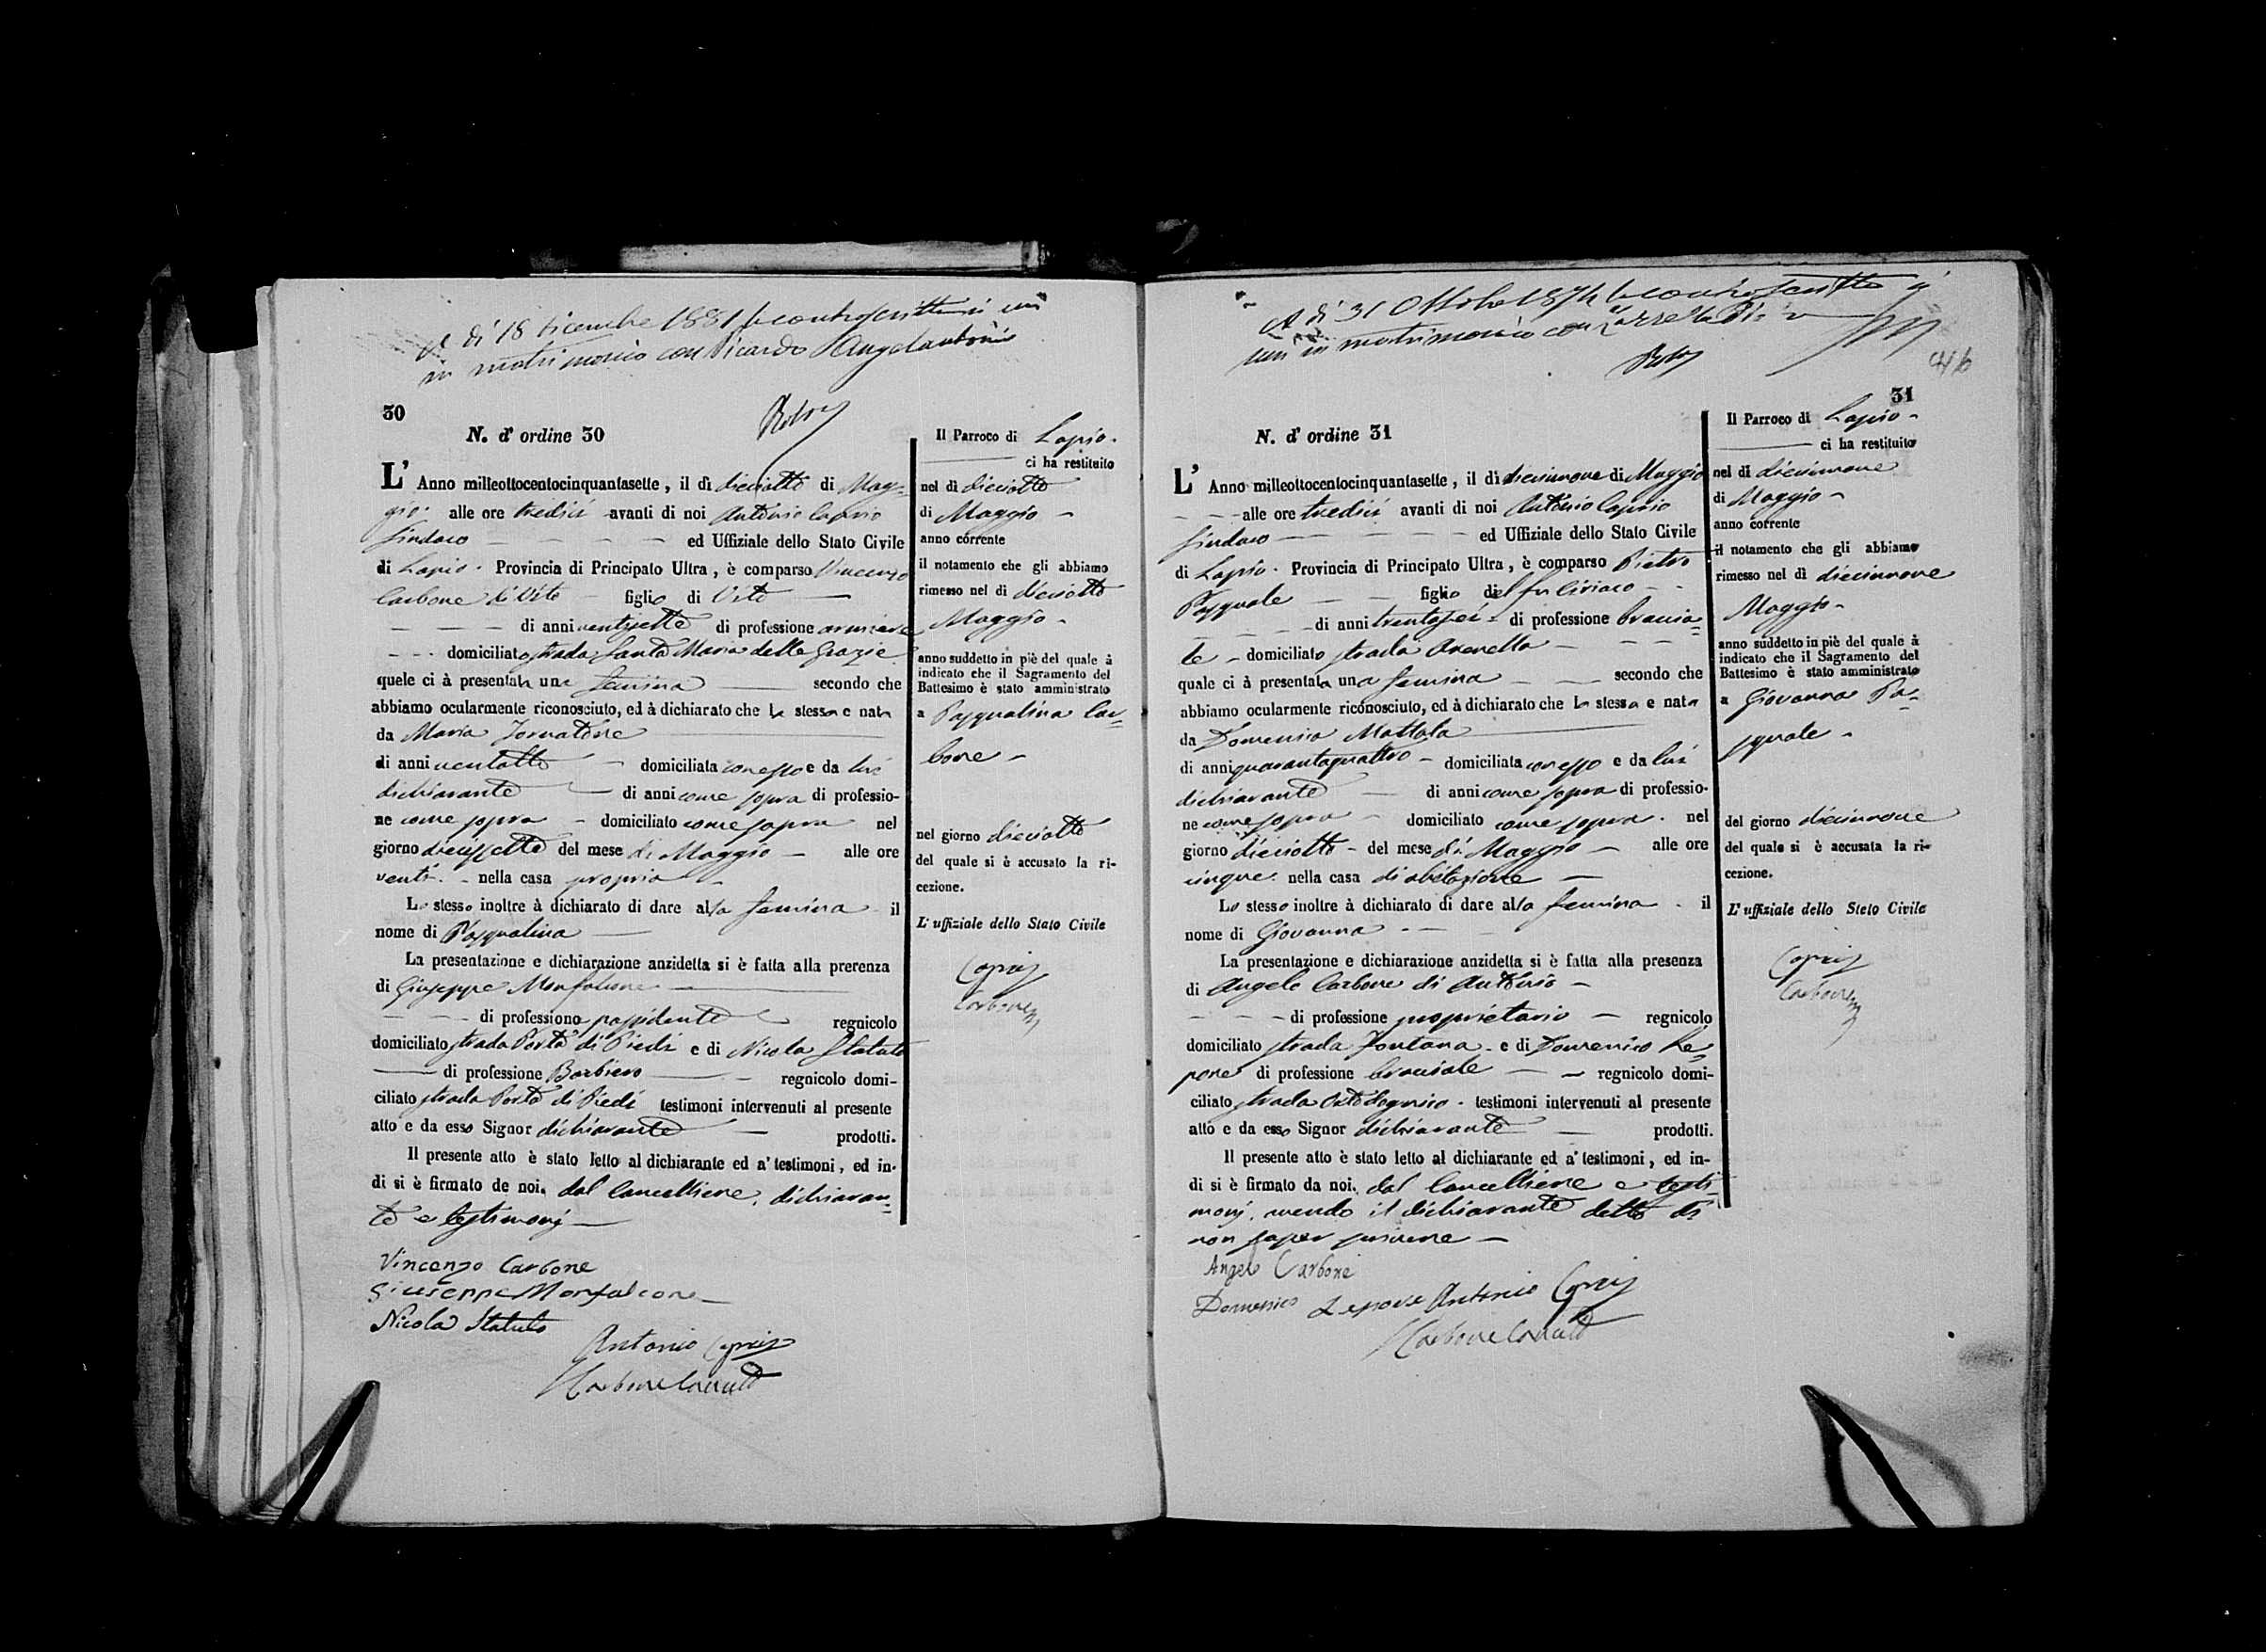 A dì 18 Dicembre 1881 la controscritta si unì
in matrimonio con Picardo Angelantonio
30
N. d' ordine 30
L' Anno milleottocentocinquantasette, il dì dieciotto di Mag-
gio alle ore tredici avanti di noi Antonio Caprio
Sindaco ed Uffiziale dello Stato Civile
di Lapio. Provincia di Principato Ultra, è comparso Vincenzo
Carbone di Vito figlio di Vito
di anni ventisette di professione armiere
domiciliato strada Santa Maria delle Grazie
quele ci à presentata una femina secondo che
abbiamo ocularmente riconosciuto, ed à dichiarato che la stessa e nata
da Maria Tornatore
di anni ventotto domiciliata con esso e da lui
dichiarante di anni come sopra di professio-
ne come sopra domiciliato come sopra nel
giorno diecissette del mese di Maggio alle ore
venti nella casa propria
Lo stesso inoltre à dichiarato di dare alla femina il
nome di Pasqualina
La presentazione e dichiarazione anzidetta si è fatta alla prerenza
di Giuseppe Monfalcone
di professiona possidente regnicolo
domiciliato strada Porta di Piedi e di Nicola Statuto
di professione Barbiero regnicolo domi-
ciliato strada Porta di Piedi testimoni intervenuti al presente
atto e da esso Signor dichiarante prodotti.
Il presente atto è stato letto al dichiarante ed a' testimoni, ed in-
di si è firmato de noi, dal Cancelliere, dichiaran-
te e testimonj
Vincenzo Carbone
Giuseppe Monfalcone
Nicola Statuto
Antonio Caprio
Carbone
Il Parroco di Lapio.
ci ha restituito
nel dì dieciotto
di Maggio
anno córrente
il notamento che gli abbiamo
rimesso nel di dieciotto
Maggio
anno suddetto in piè del quale à
indicato che il Sagramento del
Battesimo è stato amministrato
a Pasqualina Car-
bone
nel giorno dieciotto
del quale si è accusato la ri-
cezione.
L' uffiziale dello Stato Civile
Caprio
Carbone
A dì 31 Ottobre 1874 la controscritta si
unì in matrimonio con
31
N. d' ordine 31
L' Anno milleottocentocinquantasette, il dì diecinnove di Maggio
alle ore tredici avanti di noi Antonio Caprio
Sindaco ed Uffiziale dello Stato Civile
di Lapio. Provincia di Principato Ultra, è comparso Pietro
Pasquale figlio del fu Ciriaco
di anni trentasei di professione bracia=
le domiciliato strada Arenella
quale ci à presentata una femina secondo che
abbiamo ocularmente riconosciuto, ed à dichiarato che la stessa e nata
da Domenica Mottola
di anni quarantaquattro domiciliata con esso e da lui
dichiarante di anni come sopra di professio-
ne come sopra domiciliato come sopra. nel
giorno dieciotto del mese di Maggio alle ore
cinque nella casa di abitazione
Lo stesso inoltre à dichiarato di dare alla femina il
nome di Giovanna
La presentazione e dichiarazione anzidetta si è fatta alla presenza
di Angelo Carbone di Antonio
di professione proprietario regnicolo
domiciliato strada Fontana e di Domenico Le=
pore di professione braciale regnicolo domi-
ciliato strada testimoni intervenuti al presente
atto e da esso Signor dichiarante prodotti.
Il presente atto è stato letto al dichiarante ed a' testimoni, ed in-
di si è firmato da noi, dal Cancelliere e testi-
monj, avendo il dichiarante detto di
non saper scrivere
Angelo Carbone
Domenico Lepore Antonio Caprio
Carbone
Il Parroco di Lapio
ci ha restituito
nel dì diecinnove
di Maggio
anno corrente
il notamento che gli abbiamo
rimesso nel dì diecinnove
Maggio
anno suddetto in piè del quale à
indicato che il Sagramento del
Battesimo è stato amministrato
a Giovanna Pa=
squale
del giorno diecinnove
del quale si è accusata la ri-
cezione.
L' uffiziale dello Stato Civile
Caprio
Carbone